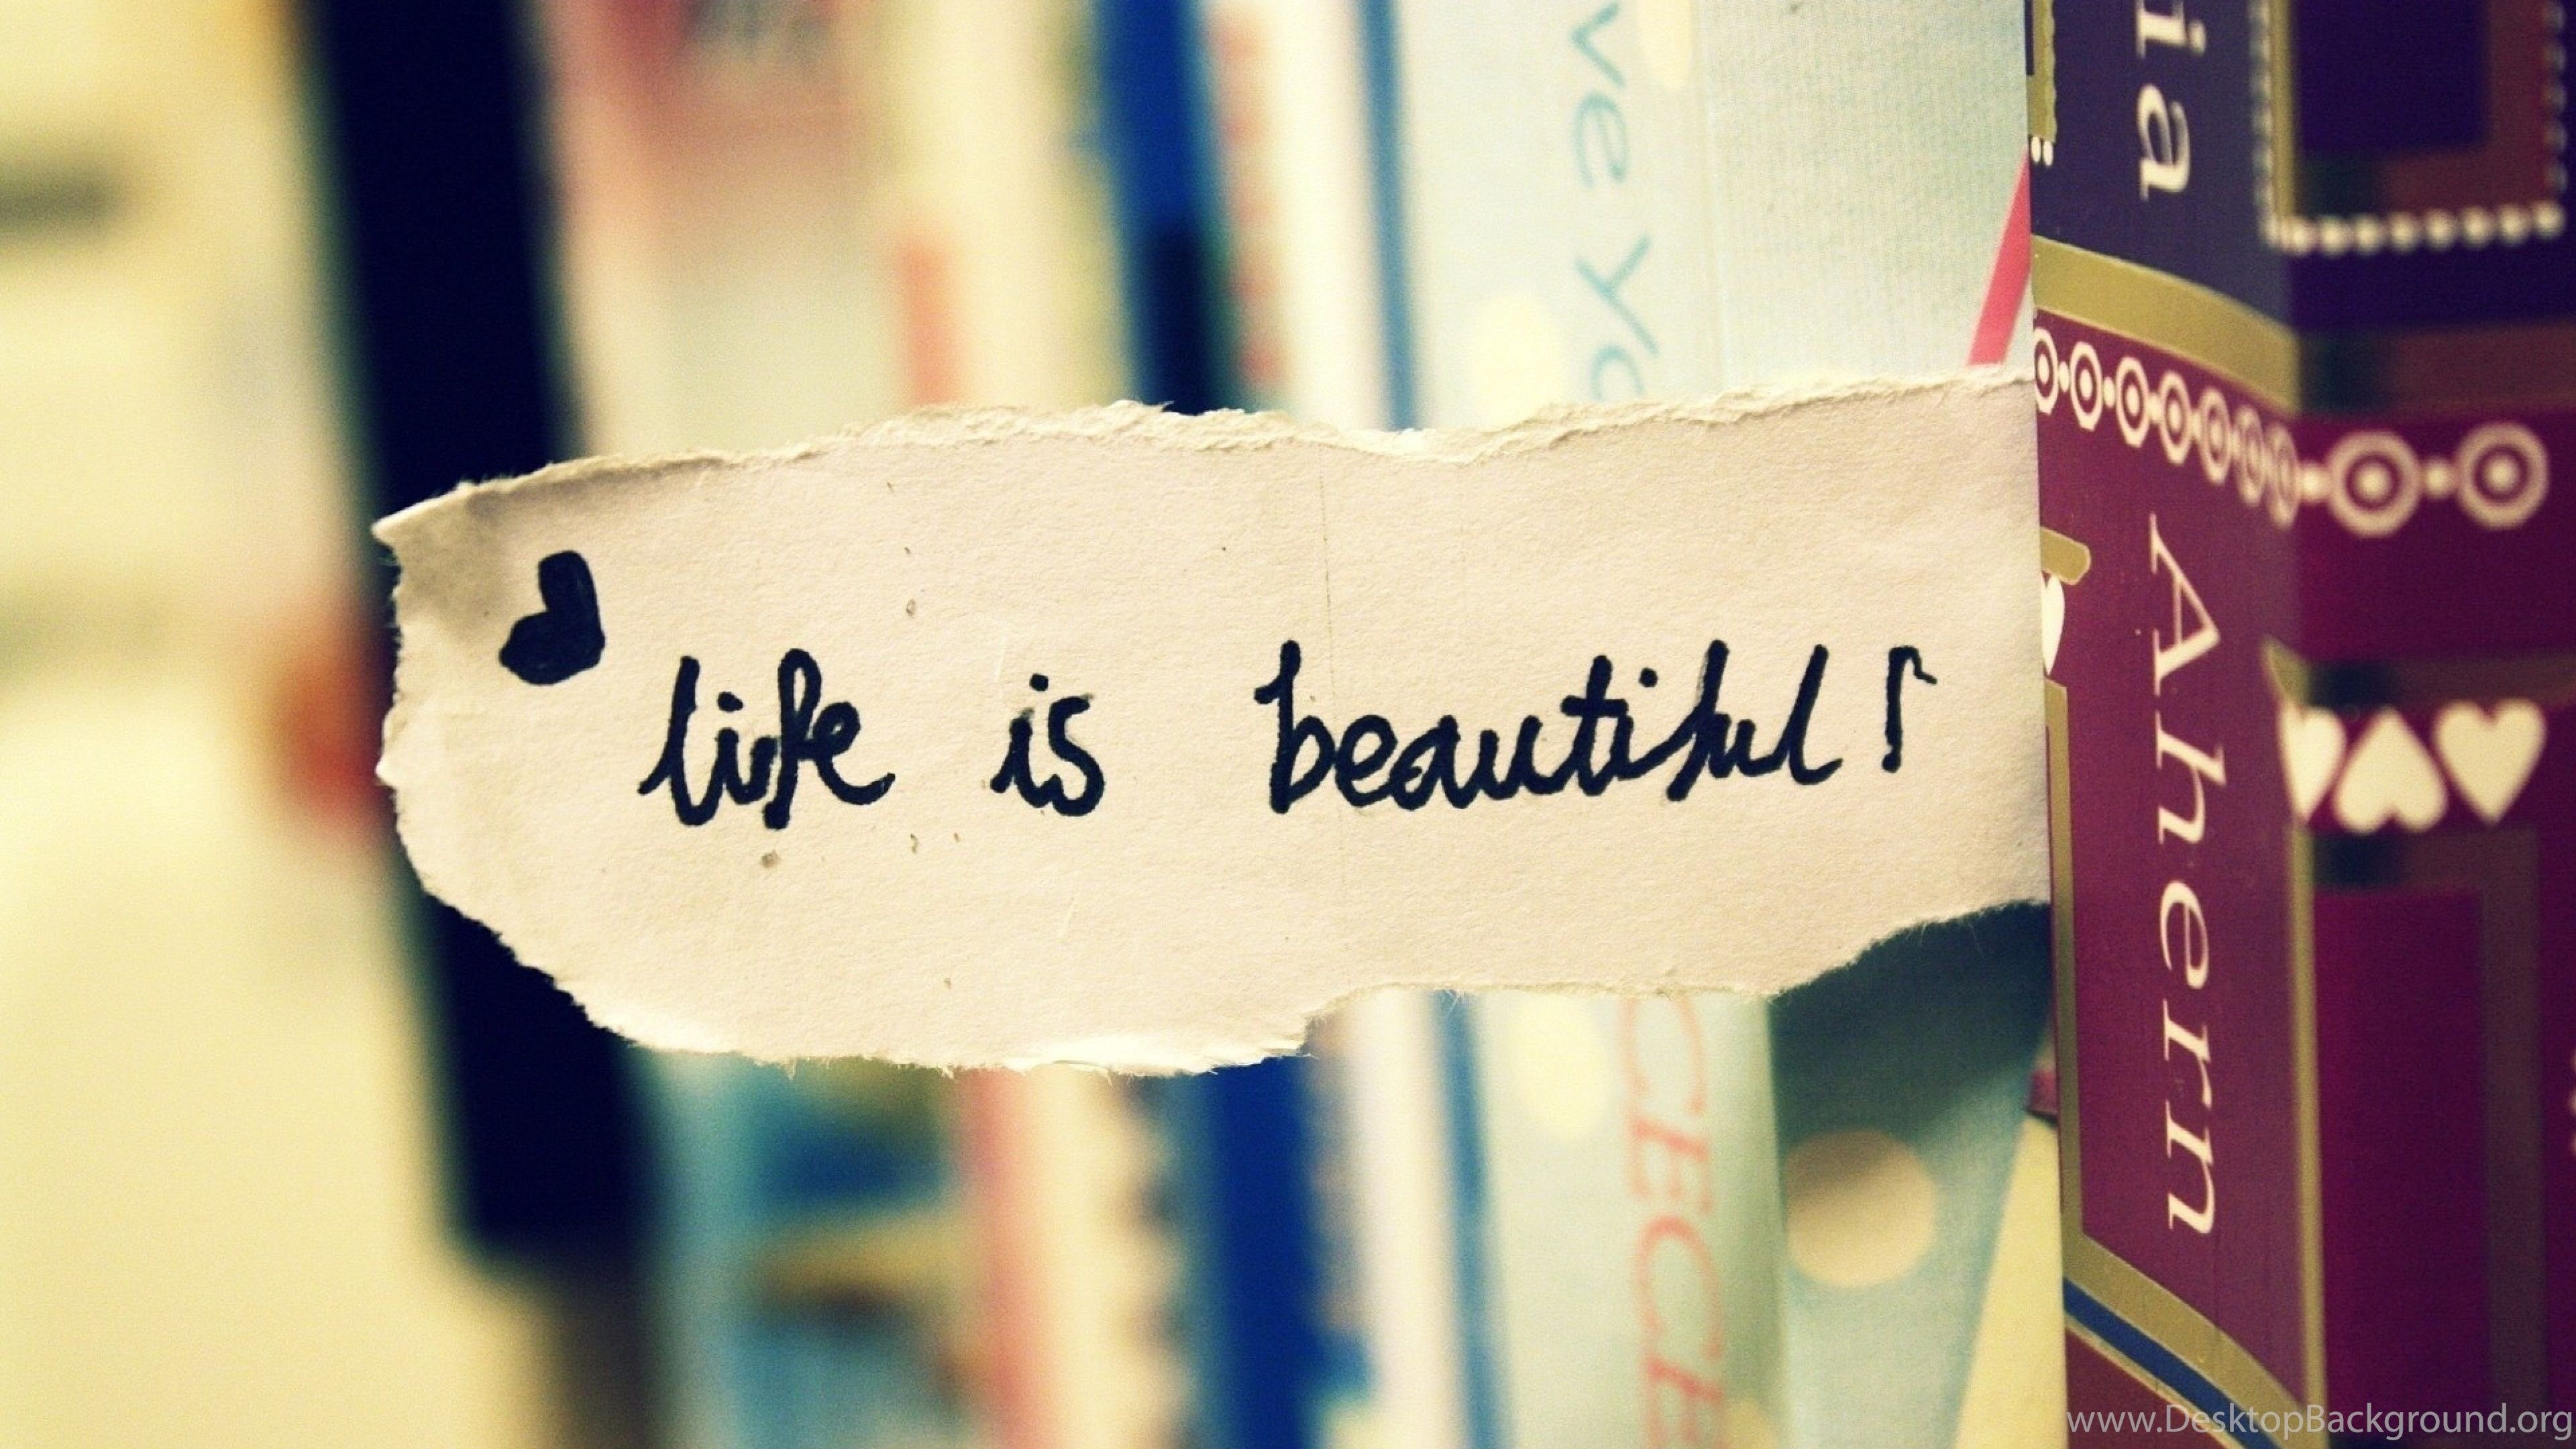 life is beautiful!
ve Yo
ia
Ahern
CECE
www.DesktopBackground.org